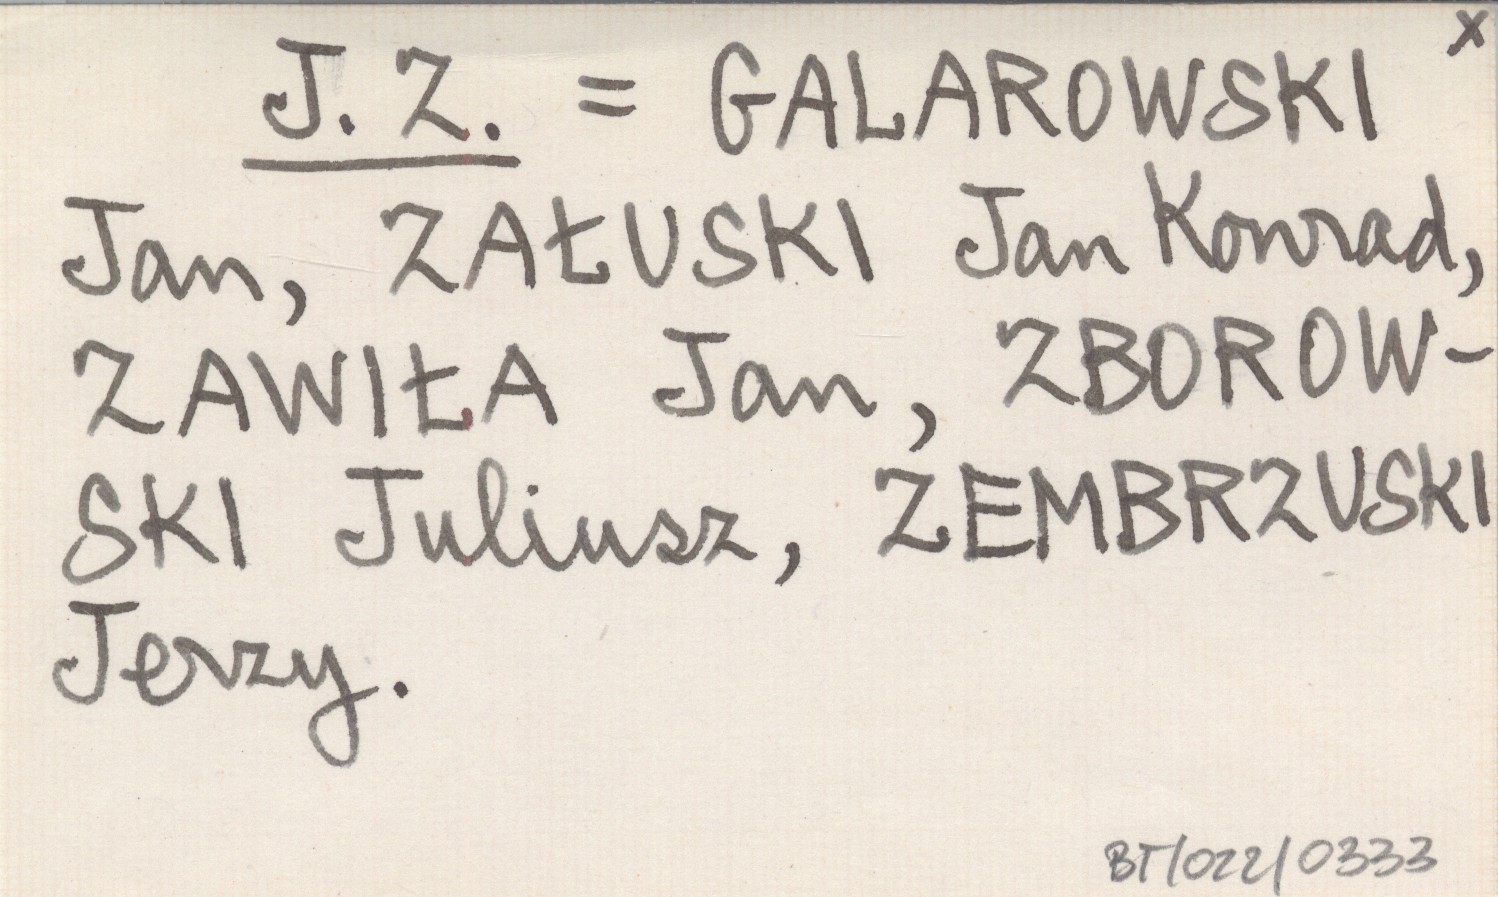 x
J. Z. = GALAROWSKI
Jan, ZAŁUSKI Jan Konrad,
ZAWIŁA Jan, ZBOROW-
SKI Juliusz, ZEMBRZUSKI
Jerzy.
BT/022/0333